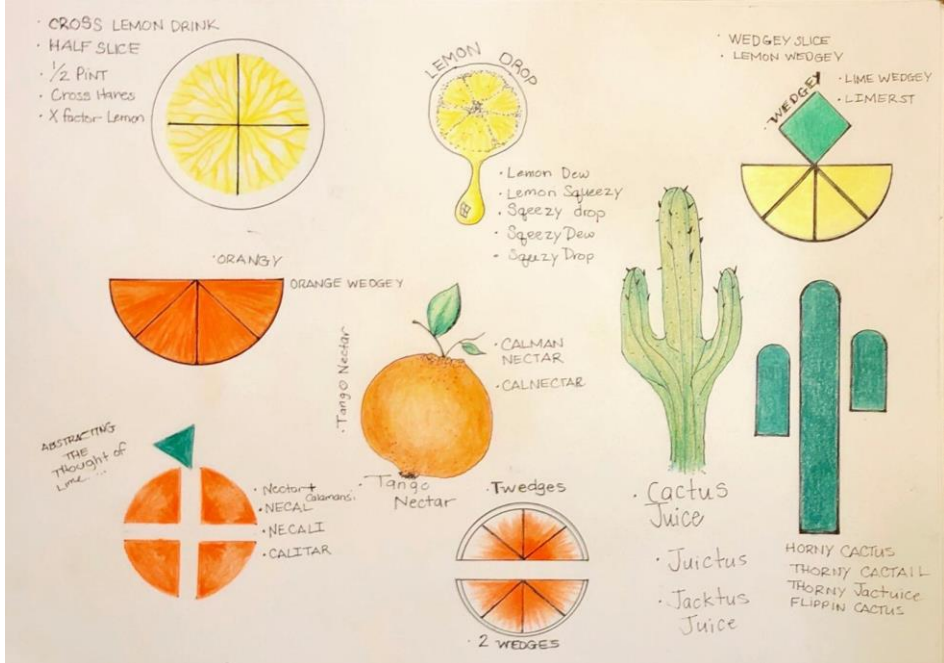 · CROSS LEMON DRINK
· HALF SLICE
· 1/2 PINT
· Cross Hares
· X factor Lemon
LEMON DROP
· Lemon Dew
· Lemon Squeezy
· Sqeezy drop
· Sqeezy Dew
· Squzy Drop
· WEDGEY SLICE
· LEMON WEDGEY
· WEDGEY
· LIME WEDGEY
· LIMERST
· ORANGY
ORANGE WEDGEY
· Tango Nectar
· CALMAN
NECTAR
· CALNECTAR
· Tango
Nectar
ABSTRACTING
THE
Thought of
Lime.....
· Nectar +
Calamansi.
· NECAL
· NECALI
· CALITAR
· Twedges
· 2 WEDGES
· Cactus
Juice
· Juictus
· Jacktus
Juice
HORNY CACTUS
THORNY CACTAIL
THORNY Jactuice
FLIPPIN CACTUS